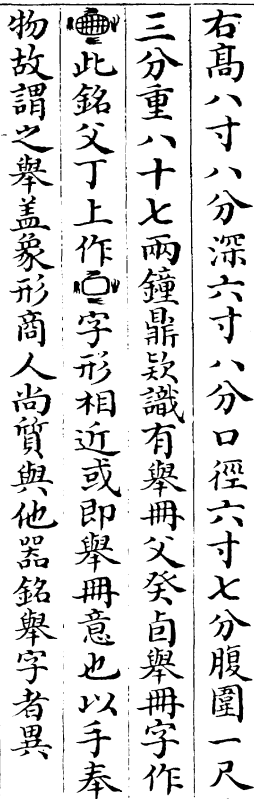 右髙八寸八分深六寸八分口徑六寸七分腹圍一尺
三分重八十七兩鐘鼎欵識有舉冊父癸卣舉冊字作
此銘父丁上作字形相近或即舉冊意也以手奉
物故謂之舉盖象形商人尚質與他器銘舉字者異